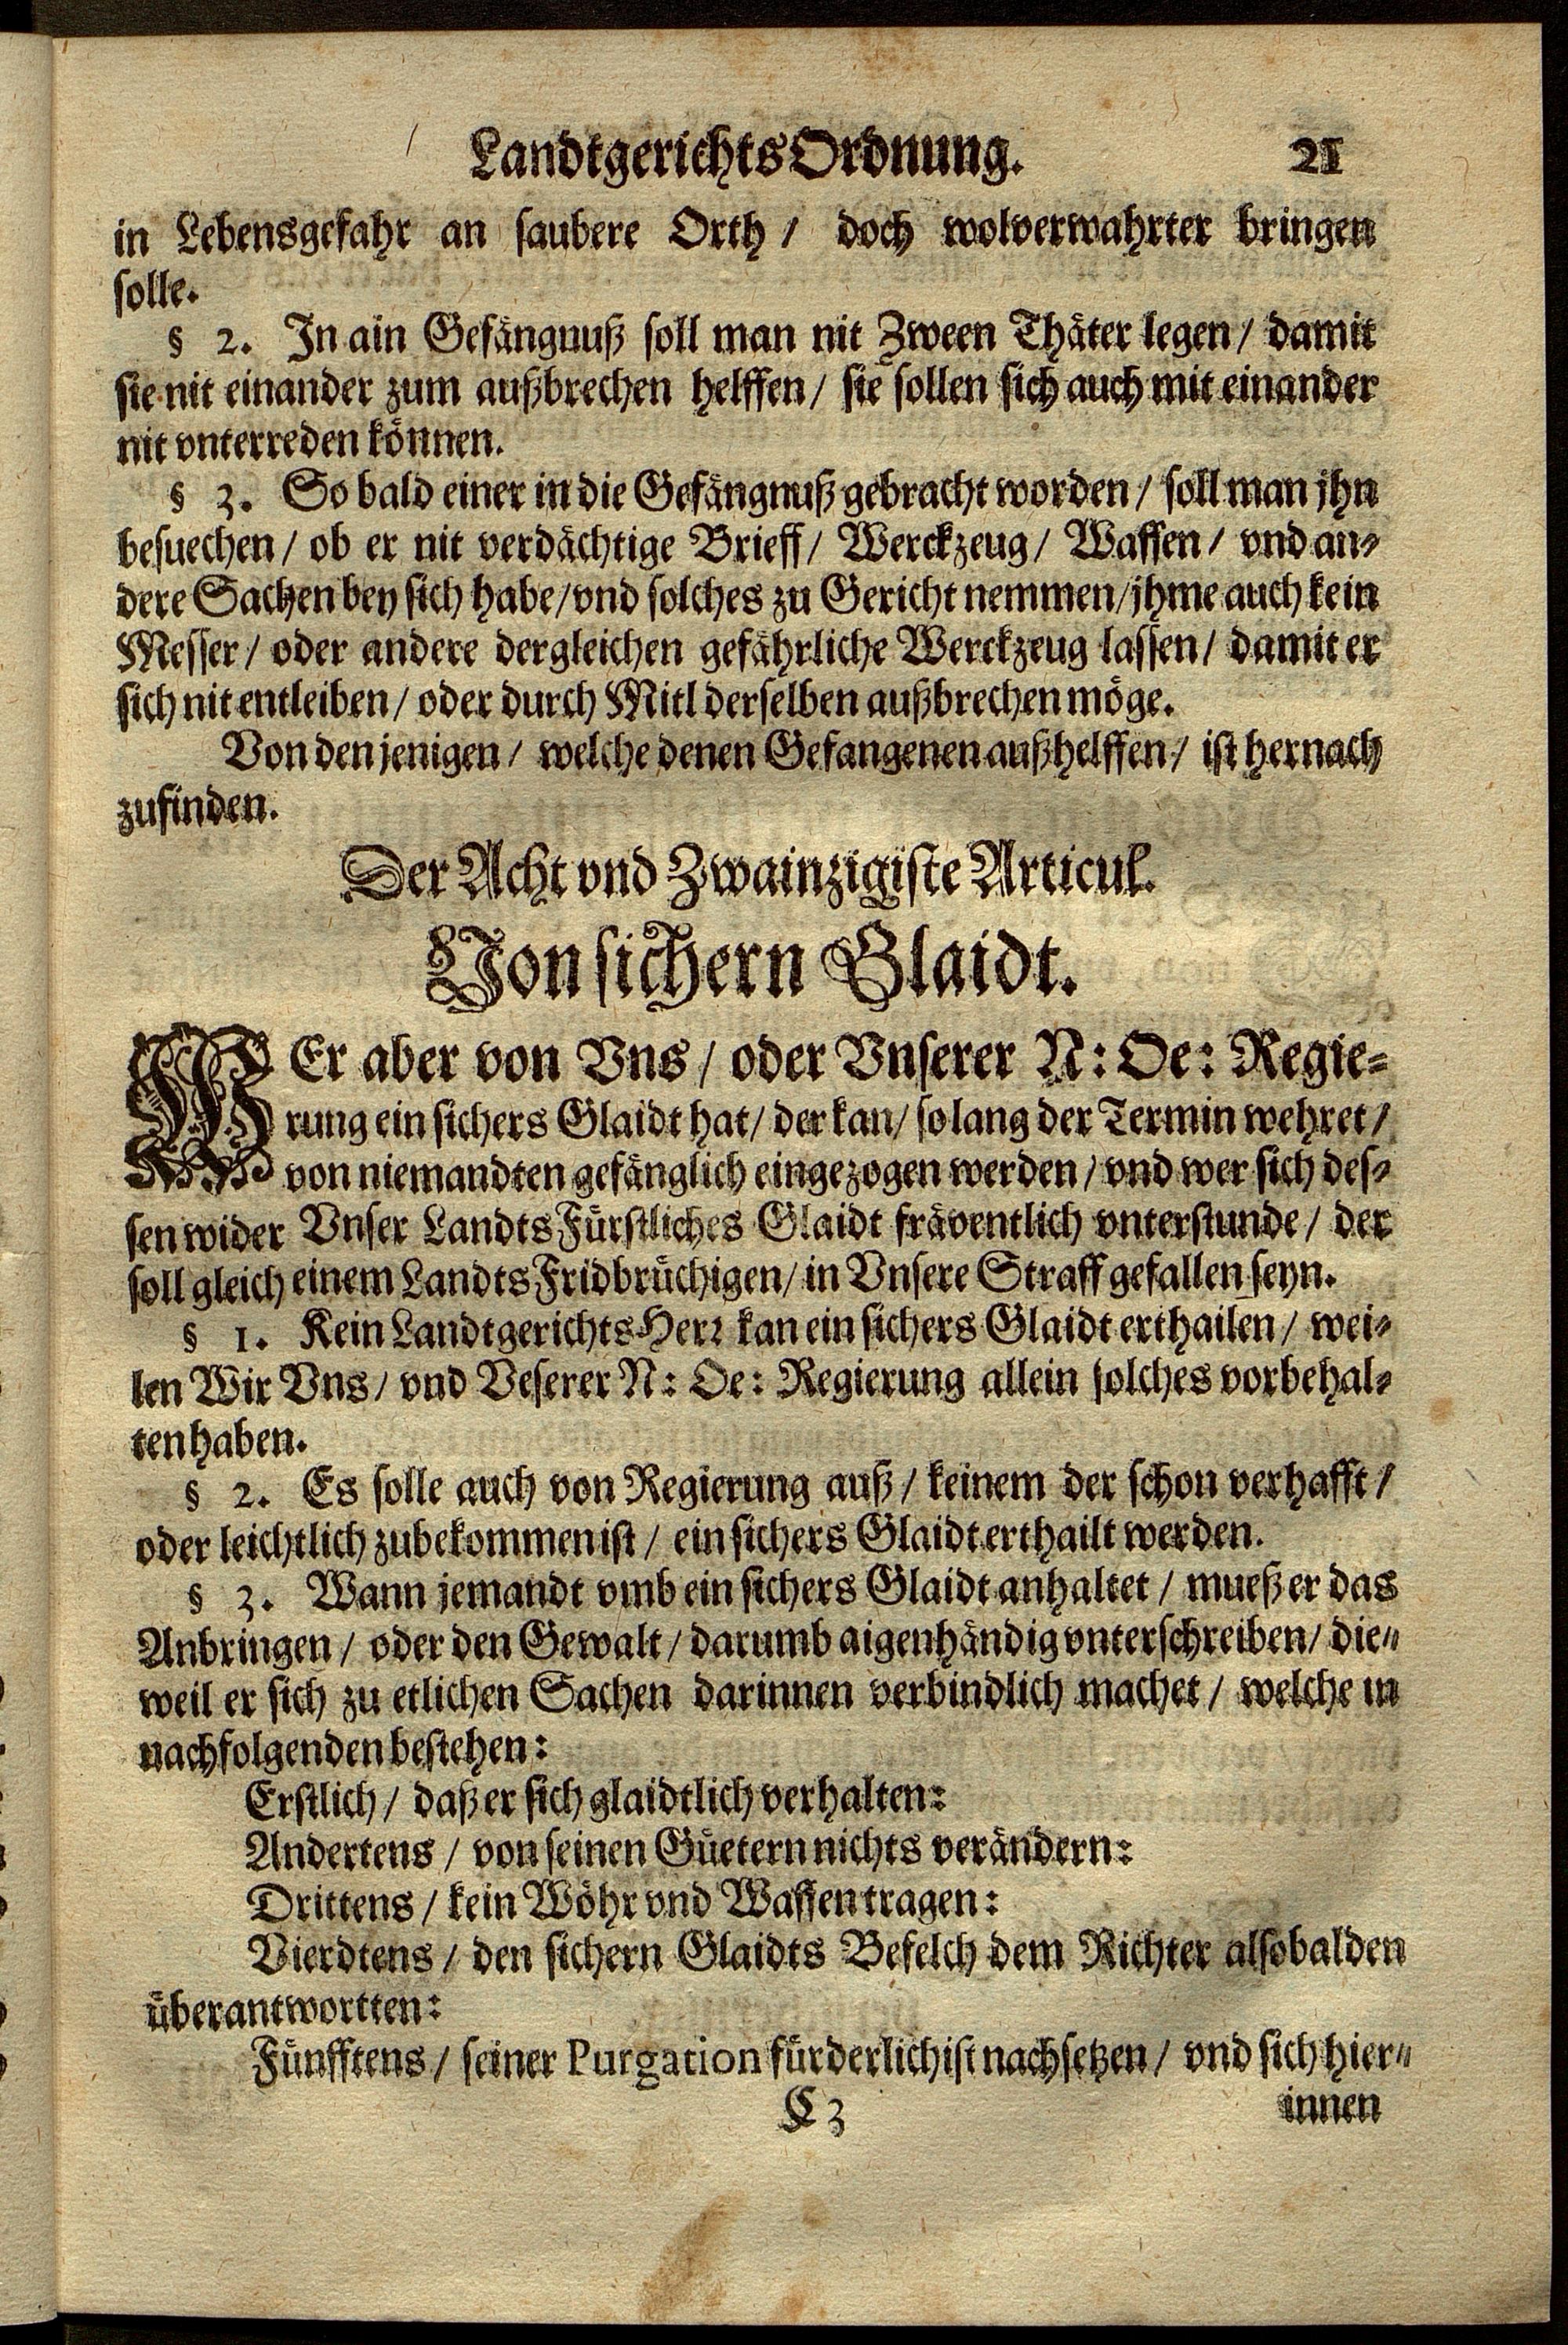 LandtgerichtsOrdnung. 21
in Lebensgefahr an saubere Orth / doch wolverwahrter bringen
solle.
§ 2. In ain Gefängnuß soll man nit Zween Thäter legen / damit
sie nit einander zum außbrechen helffen / sie sollen sich auch mit einander
nit vnterreden können.
§ 3. So bald einer in die Gefängnuß gebracht worden / soll man jhn
besuechen / ob er nit verdächtige Brieff / Werckzeug / Waffen / vnd an-
dere Sachen bey sich habe / vnd solches zu Gericht nemmen / jhme auch kein
Messer / oder andere dergleichen gefährliche Werckzeug lassen / damit er
sich nit entleiben / oder durch Mitl derselben außbrechen möge.
Von den jenigen / welche denen Gefangenen außhelffen / ist hernach
zufinden.
Der Acht vnd Zwainzigiste Articul.
Von sichern Glaidt.
WEr aber von Vns / oder Vnserer N: Oe: Regie-
rung ein sichers Glaidt hat / der kan / so lang der Termin wehret /
von niemandten gefänglich eingezogen werden / vnd wer sich des-
sen wider Vnser LandtsFürstliches Glaidt fräventlich vnterstunde / der
soll gleich einem LandtsFridbrüchigen / in Vnsere Straff gefallen seyn.
§ 1. Kein LandtgerichtsHerr kan ein sichers Glaidt erthailen / wei-
len Wir Vns / vnd Veserer N: Oe: Regierung allein solches vorbehal-
ten haben.
§ 2. Es solle auch von Regierung auß / keinem der schon verhafft /
oder leichtlich zubekommen ist / ein sichers Glaidt erthailt werden.
§ 3. Wann jemandt vmb ein sichers Glaidt anhaltet / mueß er das
Anbringen / oder den Gewalt / darumb aigenhändig vnterschreiben / die-
weil er sich zu etlichen Sachen darinnen verbindlich machet / welche in
nachfolgenden bestehen:
Erstlich / daß er sich glaidtlich verhalten:
Andertens / von seinen Güetern nichts verändern:
Drittens / kein Wöhr vnd Waffen tragen:
Vierdtens / den sichern Glaidts Befelch dem Richter alsobalden
überantwortten:
Fünfftens / seiner Purgation fürderlichist nachsetzen / vnd sich hier-
C 3 innen